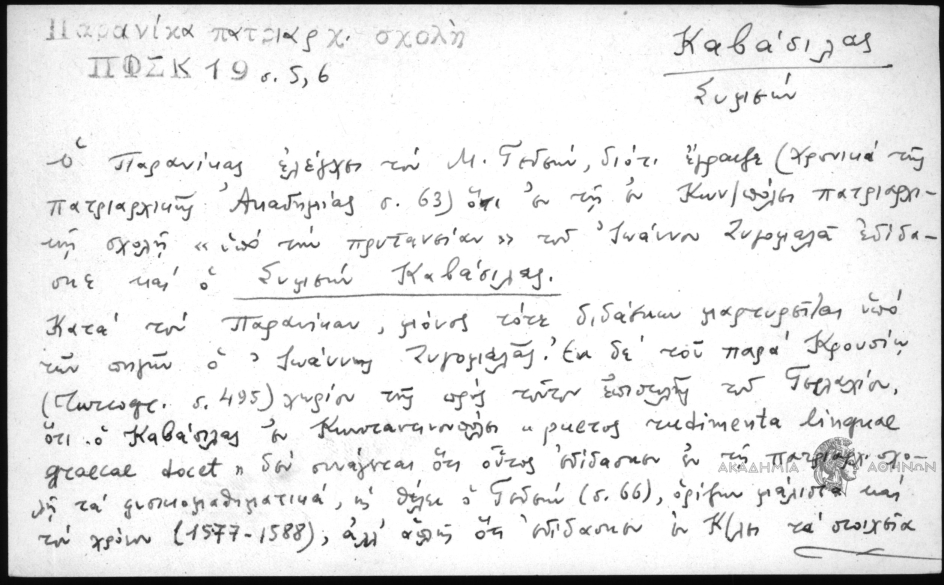 Παρανίκα πατριαρχ. σχολὴ
ΠΦΣΚ 19 σ. 5, 6
Καβάσιλας
Συμεών
Ὁ Παρανίκας ἐλέγχει τὸν Μ. Γεδεών, διότι ἔγραψε (Χρονικά τῆς
πατριαρχικῆς Ἀκαδημίας σ. 63) ὅτι ἐν τῇ ἐν Κων/πόλει πατριαρχι-
κῇ σχολῇ «ὑπό τήν πρυτανείαν» τοῦ Ἰωάννου Ζυγομαλᾶ ἐδίδα-
σκε καί ὁ Συμεών Καβάσιλας.
Κατά τόν Παρανίκαν, μόνος τότε διδάσκων μαρτυρεῖται ὑπό
τῶν πηγῶν ὁ Ἰωάννης Ζυγομαλᾶς. Ἐκ δέ τοῦ παρά Κρουσίῳ
(Turcogr. σ. 495) χωρίου τῆς πρός τοῦτον ἐπιστολῆς τοῦ Γερλαχίου,
ὅτι ὁ Καβάσιλας ἐν Κωνσταντινουπόλει «pueros rudimenta linguae
graecae docet» δέν συνάγεται ὅτι οὗτος ἐδίδασκεν ἐν τῇ πατριαρχ. σχο-
λῇ τά φυσικομαθηματικά, ὡς θέλει ὁ Γεδεών (σ. 66), ὁρίζων μάλιστα καί
τόν χρόνον (1577-1588), ἀλλ' ἁπλῶς ὅτι ἐδίδασκεν ἐν Κ/λει τά στοιχεῖα
ΑΚΑΔΗΜΙΑ ΑΘΗΝΩΝ